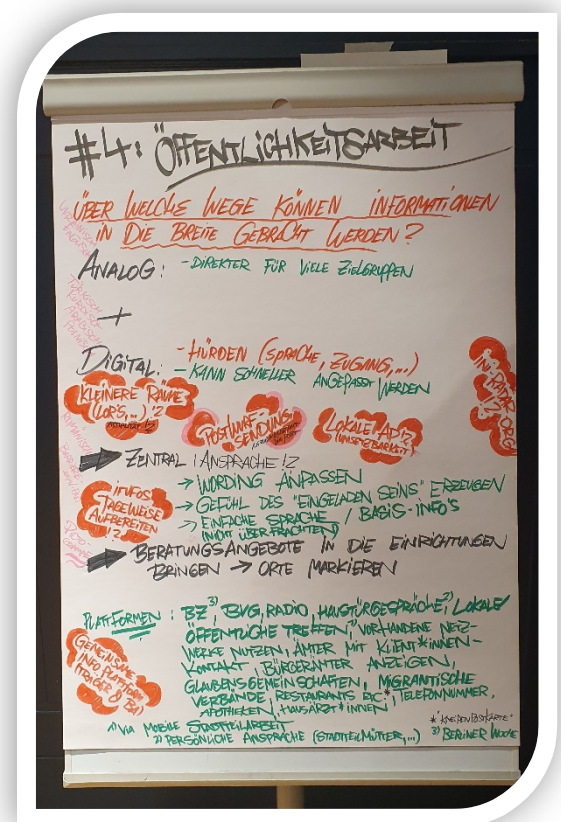 #4: ÖFFENTLICHKEITSARBEIT
ÜBER WELCHE WEGE KÖNNEN INFORMATIONEN
IN DIE BREITE GEBRACHT WERDEN?
ANALOG: - DIREKTER FÜR VIELE ZIELGRUPPEN
+
DIGITAL: - HÜRDEN (SPRACHE, ZUGANG,...)
- KANN SCHNELLER ANGEPASST WERDEN
KLEINERE RÄUME
(LOR'S,...)
POSTWURF-
SENDUNG
LOKALE AP'Z
➡ ZENTRAL: ANSPRACHE!
→ WORDING ANPASSEN
→ GEFÜHL DES "EINGELADEN SEINS" ERZEUGEN
→ EINFACHE SPRACHE / BASIS-INFO'S
(NICHT ÜBERFRACHTEN)
INFOS
TAGEWEISE
AUFBEREITEN
!?
➡ BERATUNGSANGEBOTE IN DIE EINRICHTUNGEN
BRINGEN → ORTE MARKIEREN
PLATTFORMEN: BZ³⁾, BVG, RADIO, HAUSTÜRGESPRÄCHE²⁾, LOKALE/
"ÖFFENTLICHE TREFFEN", VORHANDENE NETZ-
WERKE NUTZEN, ÄMTER MIT KLIENT*INNEN-
KONTAKT, BÜRGERÄMTER ANZEIGEN,
GLAUBENSGEMEINSCHAFTEN, MIGRANTISCHE
VERBÄNDE, RESTAURANTS ETC.*, TELEFONNUMMER,
APOTHEKEN, HAUSÄRZT*INNEN
GEMEINSAME
INFO PLATTFORM
(TRÄGER & BA)
* "KNEIPENPOSTKARTE"
1) VIA MOBILE STADTTEILARBEIT
2) PERSÖNLICHE ANSPRACHE (STADTTEILMÜTTER,...)
3) BERLINER WOCHE